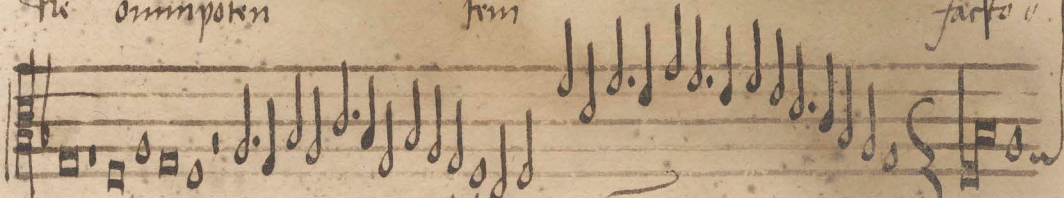 omnipoten tem facto